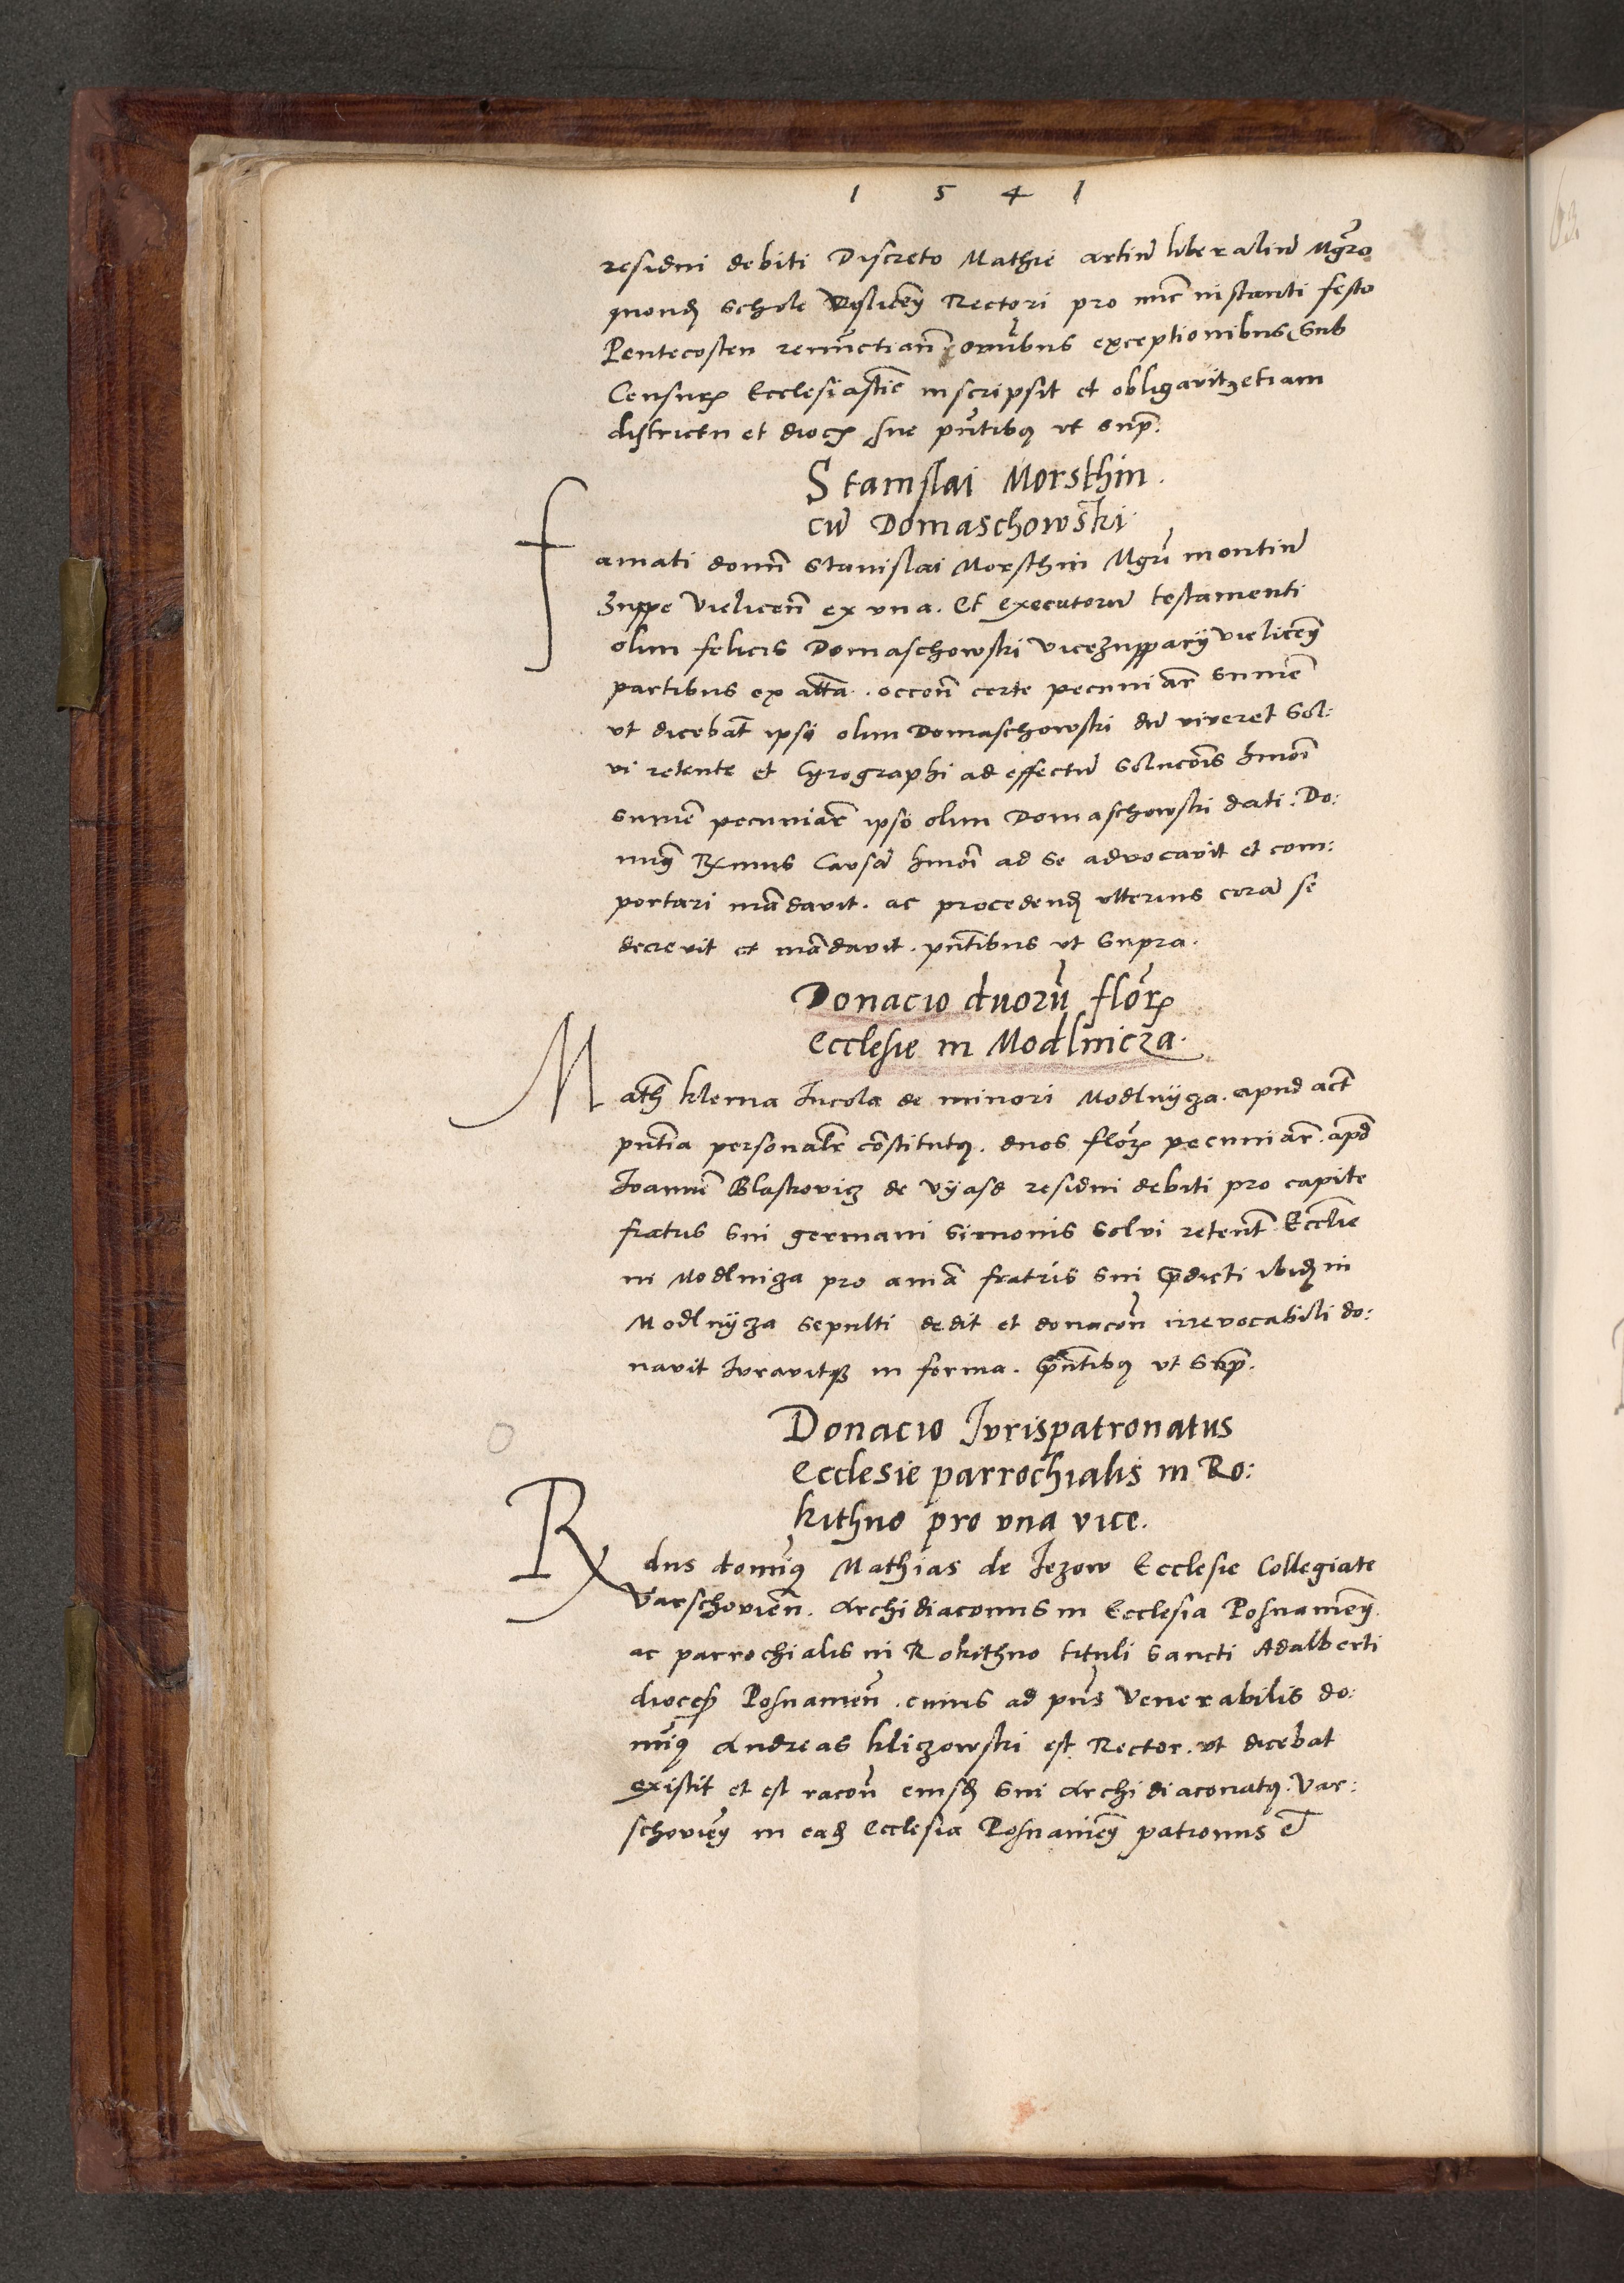 1 5 4 1
residui debiti Discreto Mathie artiũ liberaliũ Mgr̃o
quonđ schole Vyslicen̄ Rectori pro nũc instanti festo
Pentecosten renũctian̄ om̃ibus exceptionibus Sub
Censuris Ecclesiastic̄ inscripsit et obligavit etiam
districtu et dioc̄ sue pñtibꝰ vt sup̃.
Stanislai Morsthin.
cũ Domaschowski.
famati domñ Stanislai Morsthin Mgrĩ montiũ
Zuppe Vielicen̄ ex vna. Et executorũ testamenti
olim felicis Domaschowski vicezupparij vielicen̄
partibus ex alt̃a. occon̄ certe pecuniar̃ sum̃e
vt dicebat̃ ipsi olim Domaschowski dũ viveret Sol:
vi retente et Cyrographi ad effectũ solucõis hmõi
sum̃e pecuniar̃ ipso olim Domaschowski dati. Do:
minꝰ Rx̃mus Causã hmõi ad se advocavit et com:
portari mãdavit. ac procedenđ ulterius corã se
decrevit et mãdavit. pñtibus vt supra.
Donacio duorũ flor̃
Ecclesie in Modlnicza.
Math̃ klema Incola de minori Modlnycza. apud act̃
pñtia personalr̃ cõstitutꝰ. duos flor̃ pecuniar̃. apđ
Ioannẽ Blaskovicz de Vyasd residui debiti pro capite
fratris sui germani Simonis solvi retent̃ Eccl̃ie
in Modlnicza pro anĩa fratris sui p̃dicti ibiđ in
Modlnycza sepulti dedit et donacon̄ irrevocabili do:
navit Iuravitqꝫ in forma. p̃ntibꝰ vt sup̃.
Donacio Iurispatronatus
Ecclesie parrochialis in Ro:
kithno pro vna vice.
Rx̃dus domĩnꝰ Mathias de Jezow Ecclesie Collegiate
Varschovien̄. Archidiaconus in Ecclesia Posnanien̄.
ac parrochialis in Rokithno tituli sancti Adalberti
dioceš Posnanien̄. cuius ad pñs Venerabilis do:
minꝰ Andreas kliczowski est Rector. vt dicebat
existit et est racon̄ eiusđ sui Archidiaconatꝰ. Var:
schovien̄ in eađ Ecclesia Posnanien̄ patronus e͂